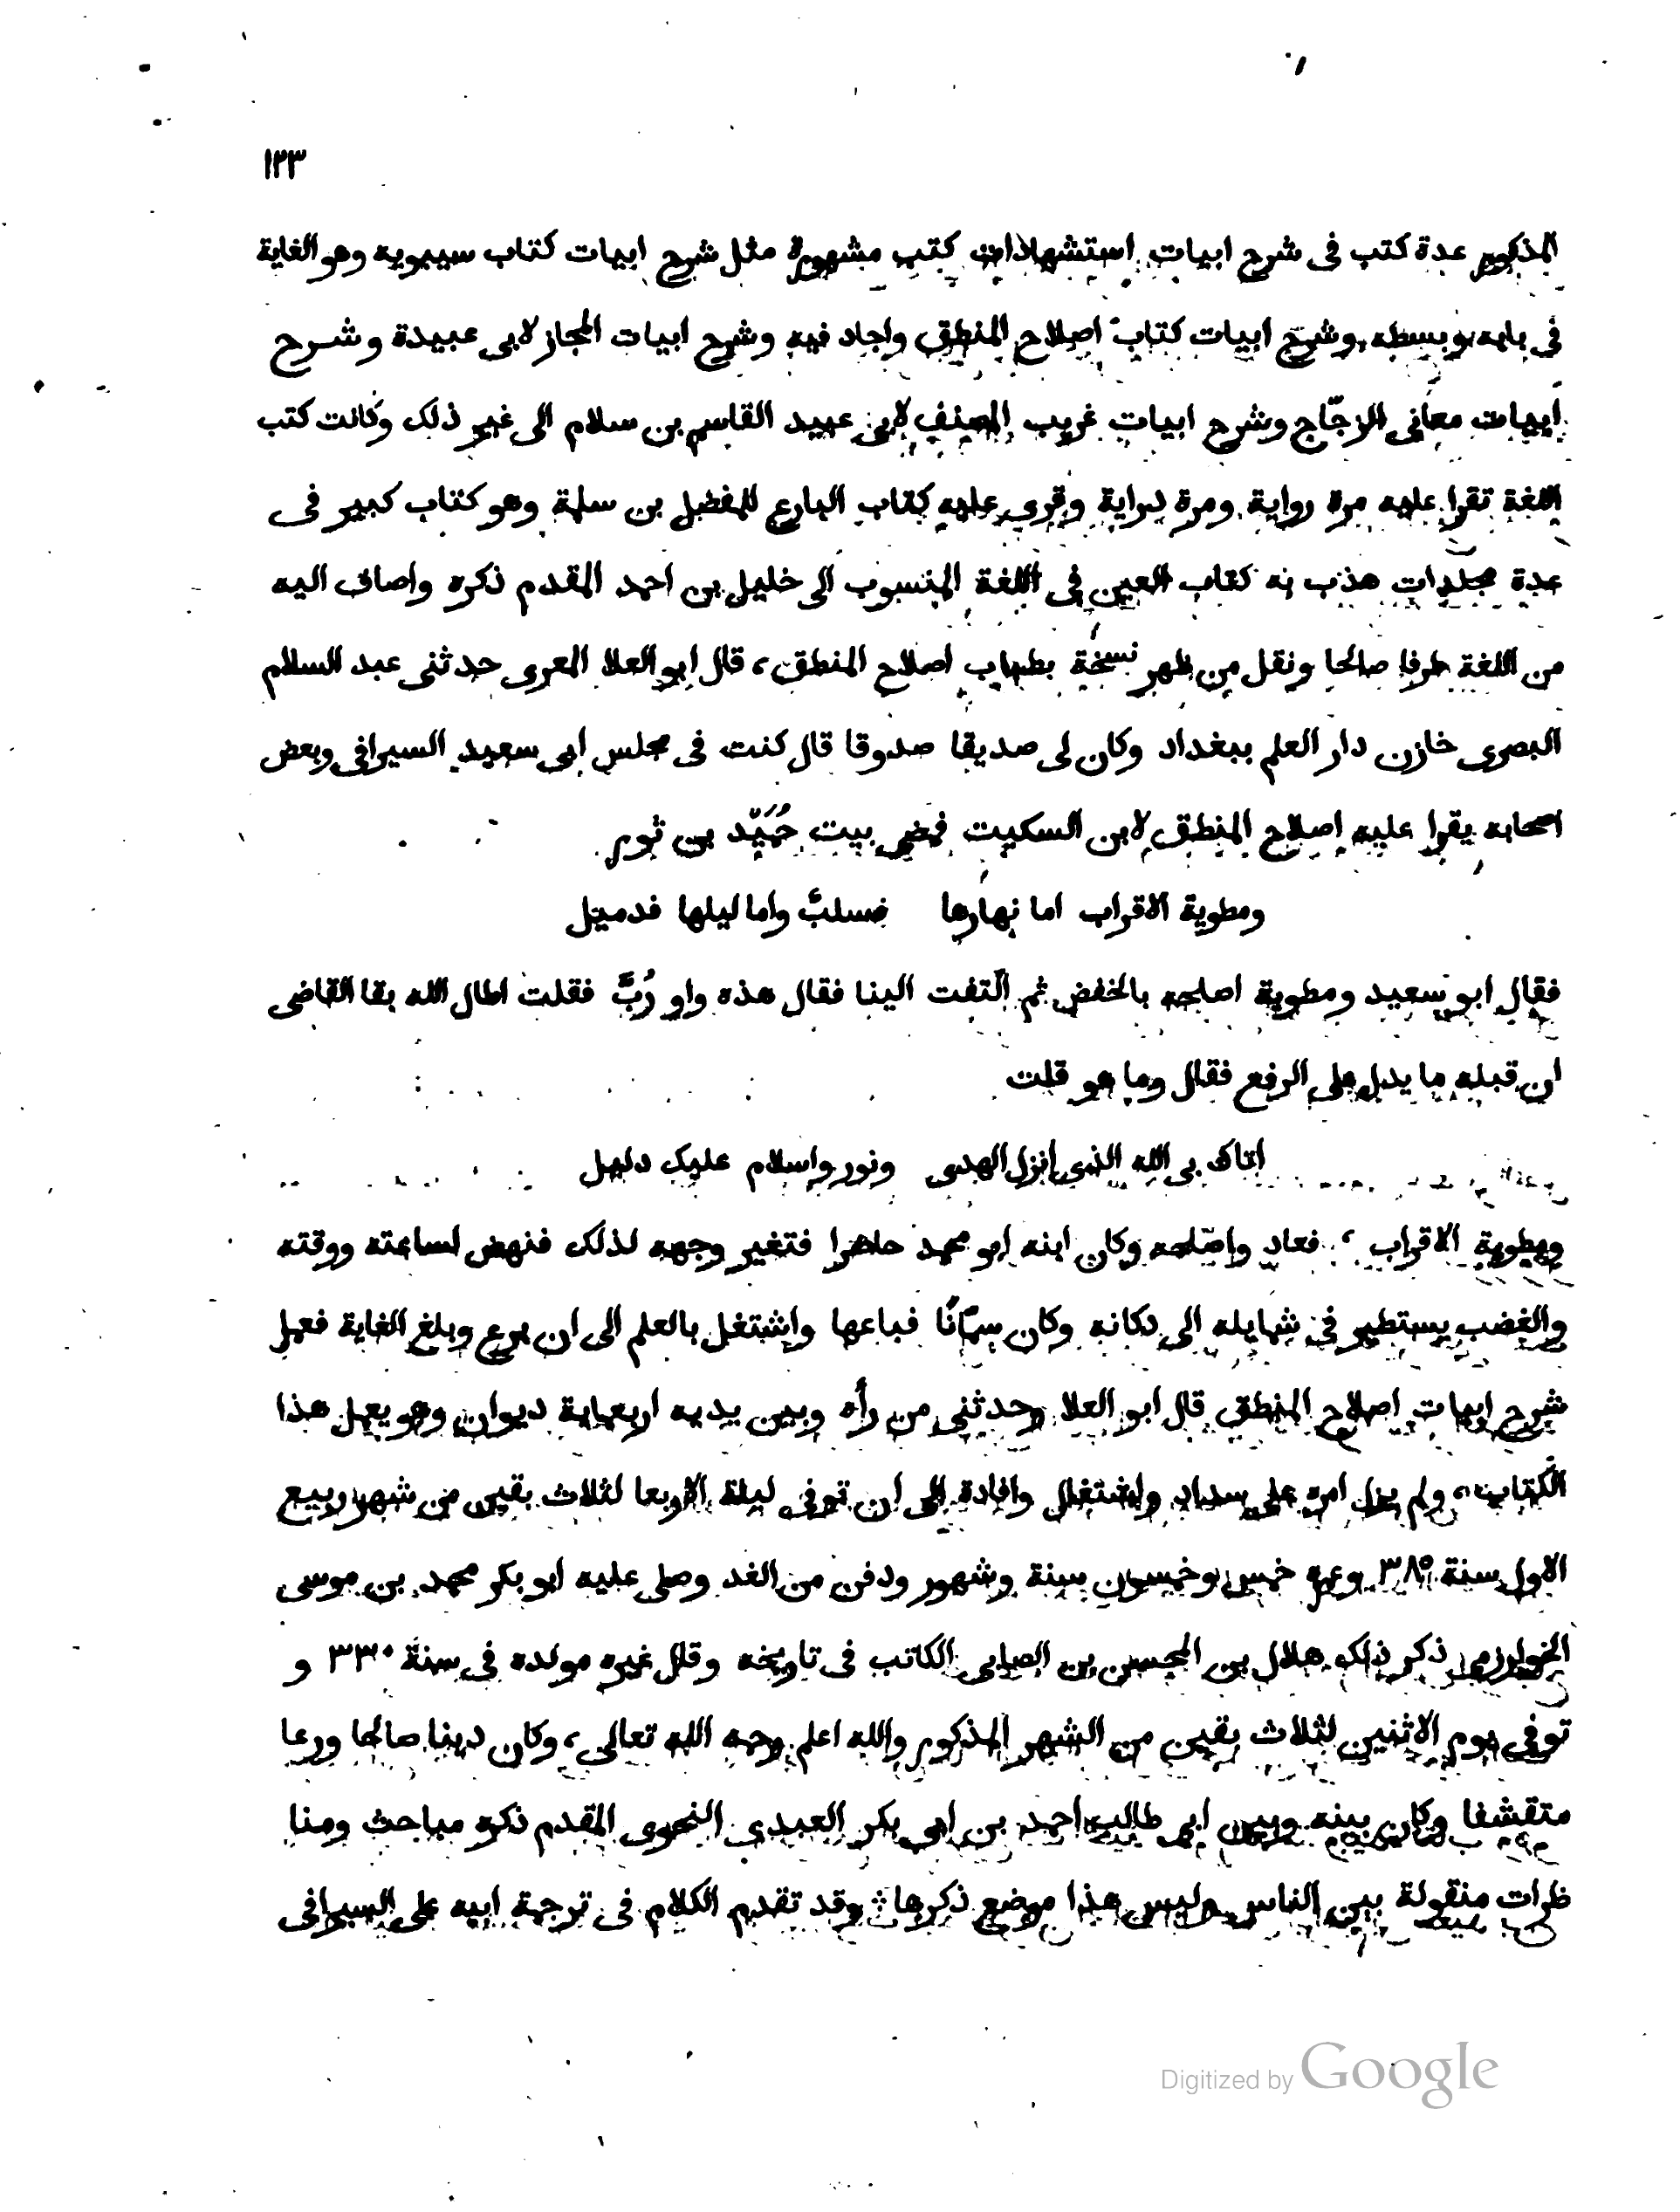 ١٢٣
المذكور عدة كتب فى شرح ابيات استشهادات كتب مشهورة مثل شرح ابيات كتاب سيبويه وهو الغاية
فى بابه وبسطه وشرح ابيات كتاب اصلاح المنطق واجاد فيه وشرح ابيات المجاز لابى عبيدة وشرح
ابيات معانى الزجّاج وشرح ابيات غريب المصنف لابى عبيد القاسم بن سلام الى غير ذلك وكانت كتب
اللغة تقرا عليه مرة رواية ومرة دراية وقرى عليه كتاب البارع للمفضل بن سلمة وهو كتاب كبير فى
عدة مجلدات هذب به كتاب العين فى اللغة المنسوب الى خليل بن احمد المقدم ذكره واضاف اليه
من اللغة طرفا صالحا ونقل من ظهر نسخة بطهاب اصلاح المنطق، قال ابو العلا المعرى حدثنى عبد السلام
البصرى خازن دار العلم ببغداد وكان لى صديقا صدوقا قال كنت فى مجلس ابى سعيد السيرافى وبعض
اصحابه يقرا عليه اصلاح المنطق لابن السكيت فمضى بيت حُمَيّد بن ثور
ومطوية الاقراب اما نهارها فسلبٌ واما ليلها فدميل
فقال ابو سعيد ومطوية اصلحه بالخفض ثم التفت الينا فقال هذه واو رُبَّ فقلت اطال الله بقا القاضى
ان قبله ما يدل على الرفع فقال وما هو قلت
اتاك بى الله الذى انزل الهدى ونور واسلام عليك دليل
ومطوية الاقراب ، فعاد واصلحه وكان ابنه ابو محمد حاضرا فتغير وجهه لذلك فنهض لساعته ووقته
والغضب يستطير فى شمايله الى دكانه وكان سمّانًا فباعها واشتغل بالعلم الى ان برع وبلغ الغاية فعمل
شرح ابيات اصلاح المنطق قال ابو العلا وحدثنى من رأه وبين يديه اربعماية ديوان وهو يعمل هذا
الكتاب، ولم يزل امره على سداد واشتغال وافادة الى ان توفى ليلة الاربعا لثلاث بقين من شهر ربيع
الاول سنة ٣٨٥ وعمره خمس وخمسون سنة وشهور ودفن من الغد وصلى عليه ابو بكر محمد بن موسى
الخوارزمى ذكر ذلك هلال بن المحسن بن الصابى الكاتب فى تاريخه وقال غيره مولده فى سنة ٣٣٠ و
توفى يوم الاثنين لثلاث بقين من الشهر المذكور والله اعلم رحمه الله تعالى، وكان دينا صالحا ورعا
متقشفا وكان بينه وبين ابى طالب احمد بن ابى بكر العبدى النحوى المقدم ذكره مباحث ومنا
ظرات منقولة بين الناس وليس هذا موضع ذكرها وقد تقدم الكلام فى ترجمة ابيه على السيرافى
Digitized by Google